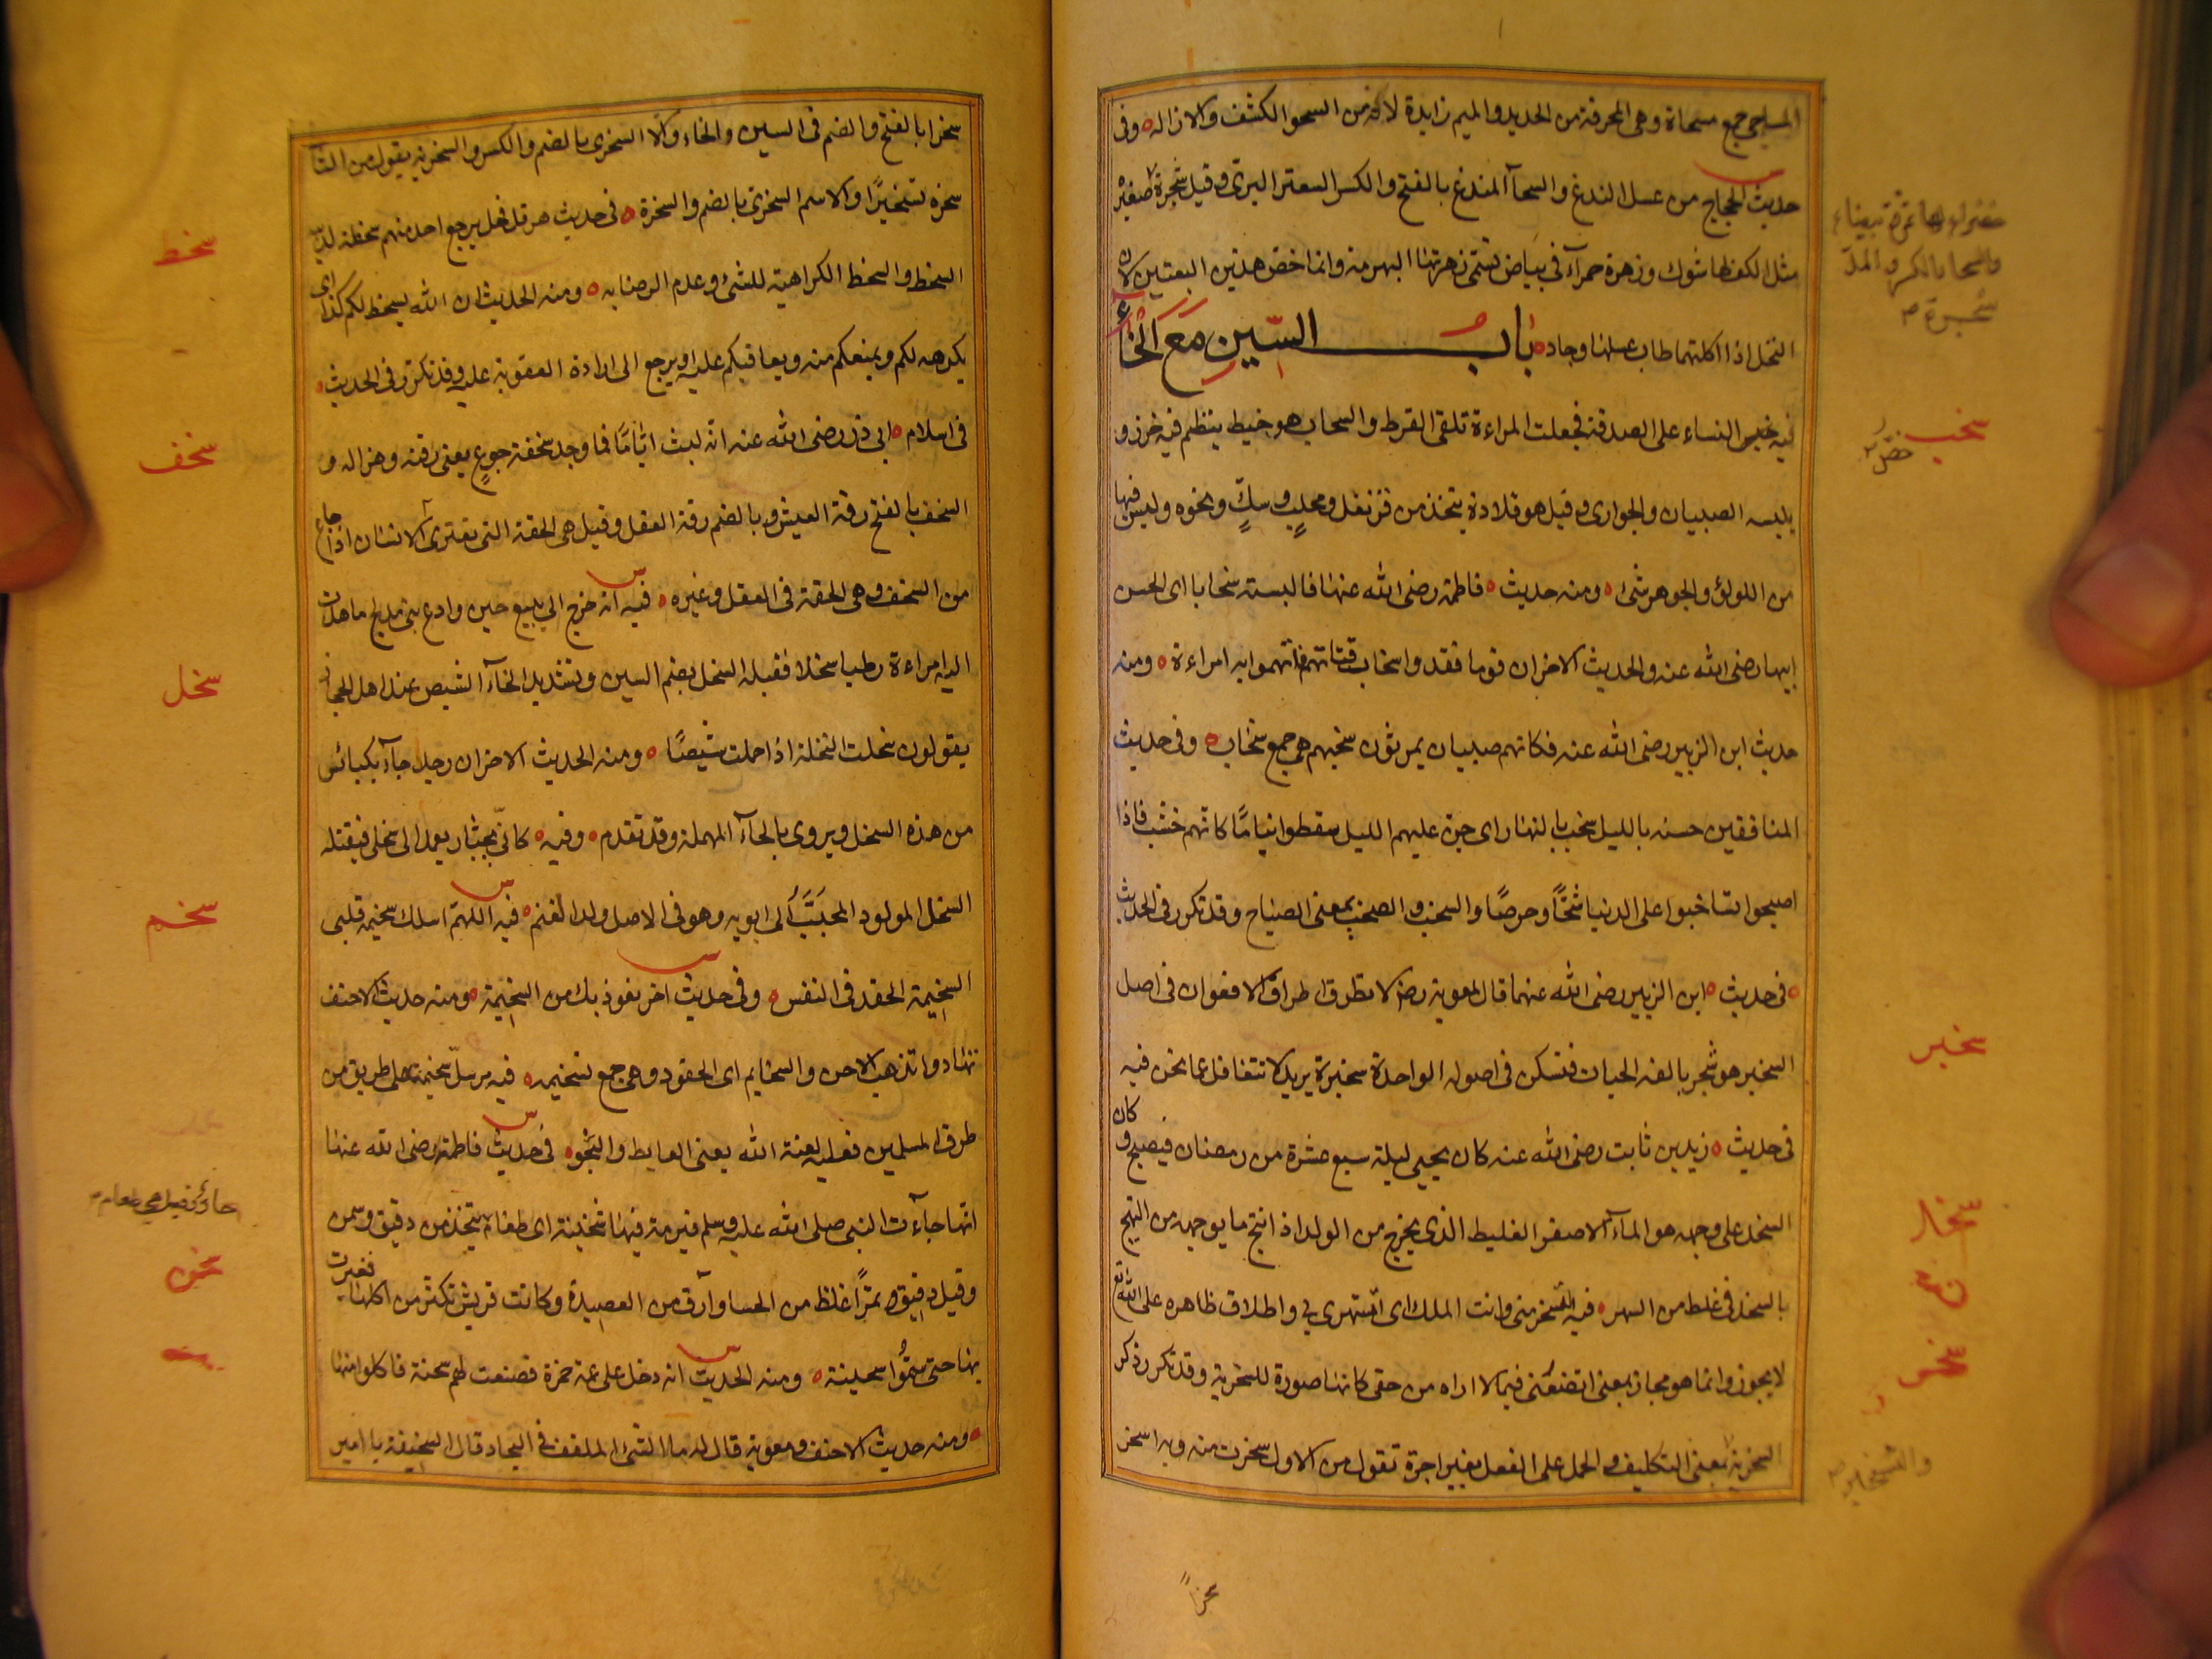 المساحي جمع مسحاة وهي المجرفة من الحديد والميم زايدة لانه من السحو الكشف والازاله وفى
حديث الحجاج من عسل الندغ والسحآ الندغ بالفتح والكسر السعتر البرى وقيل شجرة صغيره
خضراء لها ثمرة بيضاء
والسحا بالكسر والمد
شجرة صح
مثل الكف لها شوك وزهرة حمرآء في بياض تسمى زهرتها البهرمة وانما خص هذين النبتين لان
النحل اذا اكلتهما طاب عسلها وجاد باب السين مع الخاء
سخب
حض
فيه النساء على الصدقة فجعلت المراءة تلقى القرط والسخاب هو خيط ينظم فيه خرز و
يلبسه الصبيان والجوارى وقيل هو قلادة يتخذ من قرنفل ومحلب وسك ونحوه وليس فيها
من اللولؤ والجوهر شئ ومنه حديث فاطمة رضى الله عنها فالبسته سخابا اى الحسن
ابنها رضى الله عنه والحديث الاخران قوما فقدوا سخاب فتاتهم فاتهموا به امراءة ومنه
حديث ابن الزبير رضى الله عنه فكانهم صبيان يمرثون سخبهم هى جمع سخاب وفى حديث
المنافقين خشب بالليل سخب بالنهار اى جن عليهم الليل سقطوا نياما كانهم خشب فاذا
اصبحوا تساخبوا على الدنيا شحا وحرصا والسخب والصخب بمعنى الصياح وقد تكرر فى الحديث
سخبر
فى حديث ابن الزبير رضى الله عنهما قال لمعوية رض لا تطرق اطراق الافعوان فى اصل
السخبر هو شجر يالفه الحيات فتسكن فى اصوله الواحدة سخبرة يريد لا تتغافل عما نحن فيه
سخد
فى حديث زيد بن ثابت رضى الله عنه كان يحيى ليلة سبع عشرة من رمضان فيصبح وكان
السخد على وجهه هو المآء الاصفر الغليظ الذى يخرج من الولد اذا نتج ما بوجهه من التهيج
بالسخد فى غلظ من السهر فيه اتسخر منى وانت الملك اى اتستهزى بى واطلاق ظاهره على الله تع
سخر
لا يجوز وانما هو مجاز بمعنى اتضعنى فيما لا اراه من حقى كانها صورة للسخرية وقد تكرر ذكر
السخرية بمعنى التكليف والحمل على الفعل بغير اجرة تقول من الاول سخرت منه وبه اسخر
والتسخير صح
سخرا
سخرا بالفتح والضم فى السين والخاء والا السخرى بالضم والكسر والسخرية يقول من الثا
سخره تسخيرا والاسم السخرى بالضم والسخرة فى حديث هرقل فهل يرجع احد منهم سخطة لدينه
سخط
السخط والسخط الكراهية للشئ وعدم الرضا به ومنه الحديث ان الله يسخط لكم كذا اى
يكرهه لكم ويمنعكم منه ويعاقبكم عليه او يرجع الى ارادة العقوبة عليه وقد تكرر فى الحديث
سخف
فى اسلام ابى ذر رضى الله عنه انه لبث اياما فما وجد سخفة جوع يعنى رقته وهزاله و
السخف بالفتح رقة العيش وبالضم رقة العقل وقيل هى الخفة التى تعترى الانسان اذا جاع
من السخف وهى الخفة فى العقل وغيره فيه انه خرج الى ينبع حين وادع بنى مدلج فاهدت
سخل
اليه امراءة رطبا سخلا فقبله السخل بضم السين وتشديد الخآء الشيص عند اهل الحجاز
يقولون سخلت النخلة اذا حملت شيصا ومنه الحديث الاخران رجلا جآء بكبائس
من هذه السخل ويروى بالحآء المهملة وقد تقدم وفيه كانى بجبار يعمد الى سخلى فيقتله
سخم
السخل المولود المحبب الى ابويه وهو فى الاصل ولد الغنم فيه اللهم اسلل سخيمة قلبى
السخيمة الحقد فى النفس وفى حديث اخر نعوذ بك من السخيمة ومنه حديث الاحنف
تهادوا تذهب الاحن والسخايم اى الحقود وهى جمع سخيمه فيه من سل سخيمته على طريق من
طرق المسلمين فعليه لعنة الله يعنى الغايط والنجو فى حديث فاطمة رضى الله عنها
حار وقيل هى طعام صح
انها جآءت النبى صلى الله عليه وسلم ببرمة فيها سخينة اى طعام يتخذ من دقيق وسمن
سخن
وقيل دقيق وتمر اغلظ من الحسا وارق من العصيدة وكانت قريش تكثر من اكلها فعيرت
بها حتى سموا سخينة ومنه الحديث انه دخل على عمه حمزة فصنعت لهم سخنة فاكلوا منها
ومنه حديث الاحنف ومعوية قال له ما الشئ الملفف فى البجاد قال السخينة يا امير